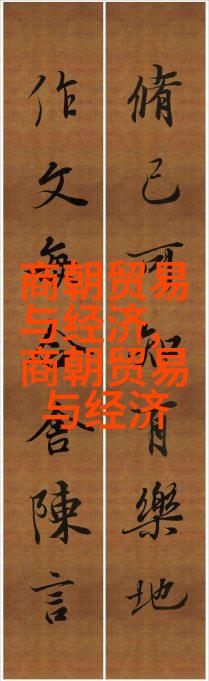 脩己可知有樂地
作文每舍陳言
商朝贸易
与经济，
商朝贸易
与经济